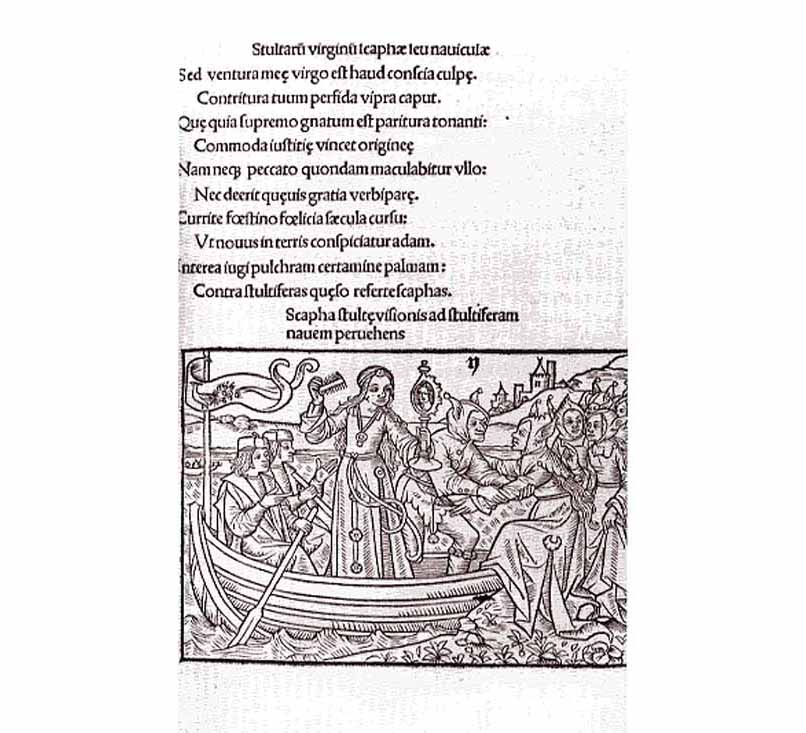 Stultarū virginū scaphæ seu nauiculæ
Sed ventura meę virgo est haud conscia culpę.
Contritura tuum perfida vipra caput.
Quę quia supremo gnatum est paritura tonanti:
Commoda iustitię vincet origineę
Nam neqꝫ peccato quondam maculabitur vllo:
Nec deerit quęuis gratia verbiparę.
Currite fœstino fœlicia sæcula cursu:
Vt nouus in terris conspiciatur adam.
Interea iugi pulchram certamine palmam:
Contra stultiferas quęso referte scaphas.
Scapha stultę visionis ad stultiferam
nauem peruehens